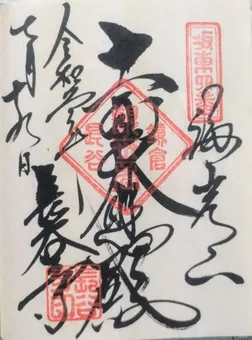 坂東四番
海光山
大悲殿
鎌倉
長谷
長谷寺
令和元年
七月十九日